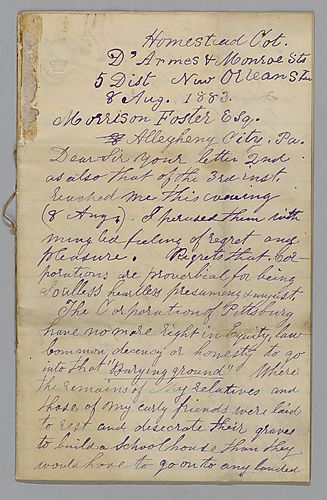 Homestead Cot.
D'Armes & Monroe Sts
5 Dist New Orleans La
8 Aug. 1883.
Morrison Foster Esq.
Allegheny City, Pa.
Dear Sir your letter 2nd
as also that of the 3rd inst.
reached me this evening
(8 Aug). I perused them with
mingled feeling of regret and
pleasure. Regrets that Cor-
porations are proverbical for being
soulless heartless presuming & unjust.
The Corporation of Pittsburg
have no more right in Equity, law
common decency or honesty to go
into that "Burying ground" Where
the remains of My relatives and
those of My early friends were laid
to rest and disecrate their graves
to build a School house than they
would have to go on to any landed